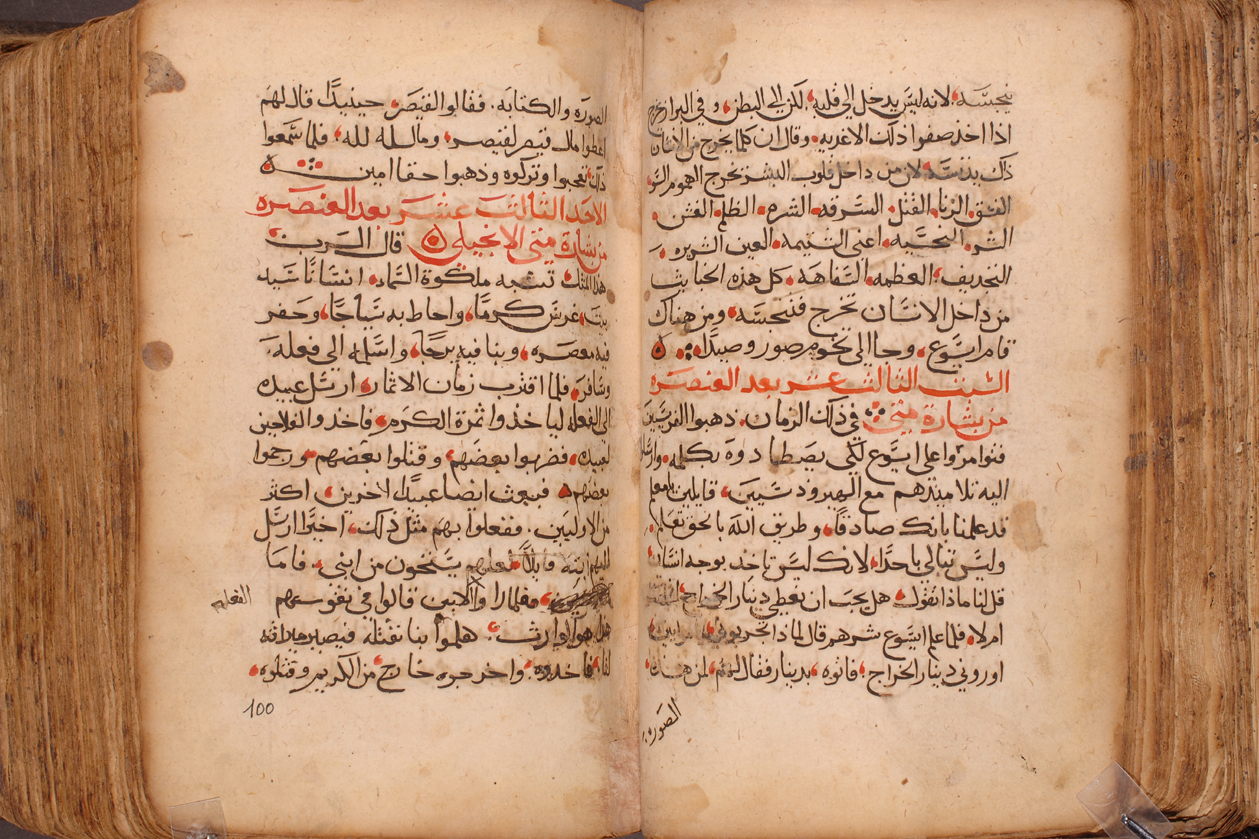 ينجسه لانه ليس يدخل الى قلبه لكن الى البطن وفي البراز يخرج
اذا اخذ صفوا ذلك الاغديه وقال ان كلما يخرج من الانسان
ذلك يدنسه لان من داخل قلوب البشر تخرج الهموم
الفسق الزنا القتل السرقه الشره الظلم الغش
الشر النجسيه اعنى الشتيمه العين الشريره
التجديف العظمه السفاهه كل هذه الخبايث
من داخل الانسان تخرج فتنجسه ومن هناك
قام ايسوع وجا الى تخوم صور وصيدا
السبت الثالث عشر بعد العنصره
من بشارة متى في ذلك الزمان ذهبوا الفريسين
فتوامروا على ايسوع لكي يصطادوه بكلمه وارسلوا
اليه تلاميذهم مع الهيرودسيين قايلين يامعلم
قد علمنا بانك صادقا وطريق الله بالحق تعلم
وليس تبالي باحدا لانك ليس تاخد بوجه انسان
قل لنا ماذا تقول هل يجب ان نعطي دينار الخراج
ام لا فلما علم ايسوع شرهم قال لماذا تجربوني
اوروني دينار الخراج فاتوه بدينار فقال لهم لمن هذه
الصوره
الصوره والكتابه فقالوا لقيصر حينيدا قال لهم
اعطوا مال قيصر لقيصر ومال لله لله فلما سمعوا
ذلك تعجبوا وتركوه وذهبوا حقا امين
الاحد الثالث عشر بعد العنصره
من بشارة متى الانجيلي قال الرب
هذا المثل تشبه ملكوة السماء انسانا سيد
بيت غرس كرما واحاط به سياجا وحفر
فيه معصره وبنا فيه برجا واسلمه الى فعله
وسافر فلما اقترب زمان الاثمار ارسل عبيده
الى الفعله لياخذوا ثمرة الكرم فاخدوا الفلاحين
لعبيده فضربوا بعضهم وقتلوا بعضهم ورجموا
بعضهم فبعث ايضا عبيدا اخرين اكثر
من الاوليين ففعلوا بهم مثل ذلك اخيرا ارسل
اليهم ابنه قايلا لعلهم يستحون من ابني فاما
فلما راوا الابن قالوا في نفوسهم
الفعله
هذا هو الوارث هلموا بنا نقتله فيصير ميراثه
لنا فاخدوه واخرجوه خارج من الكريم وقتلوه
100